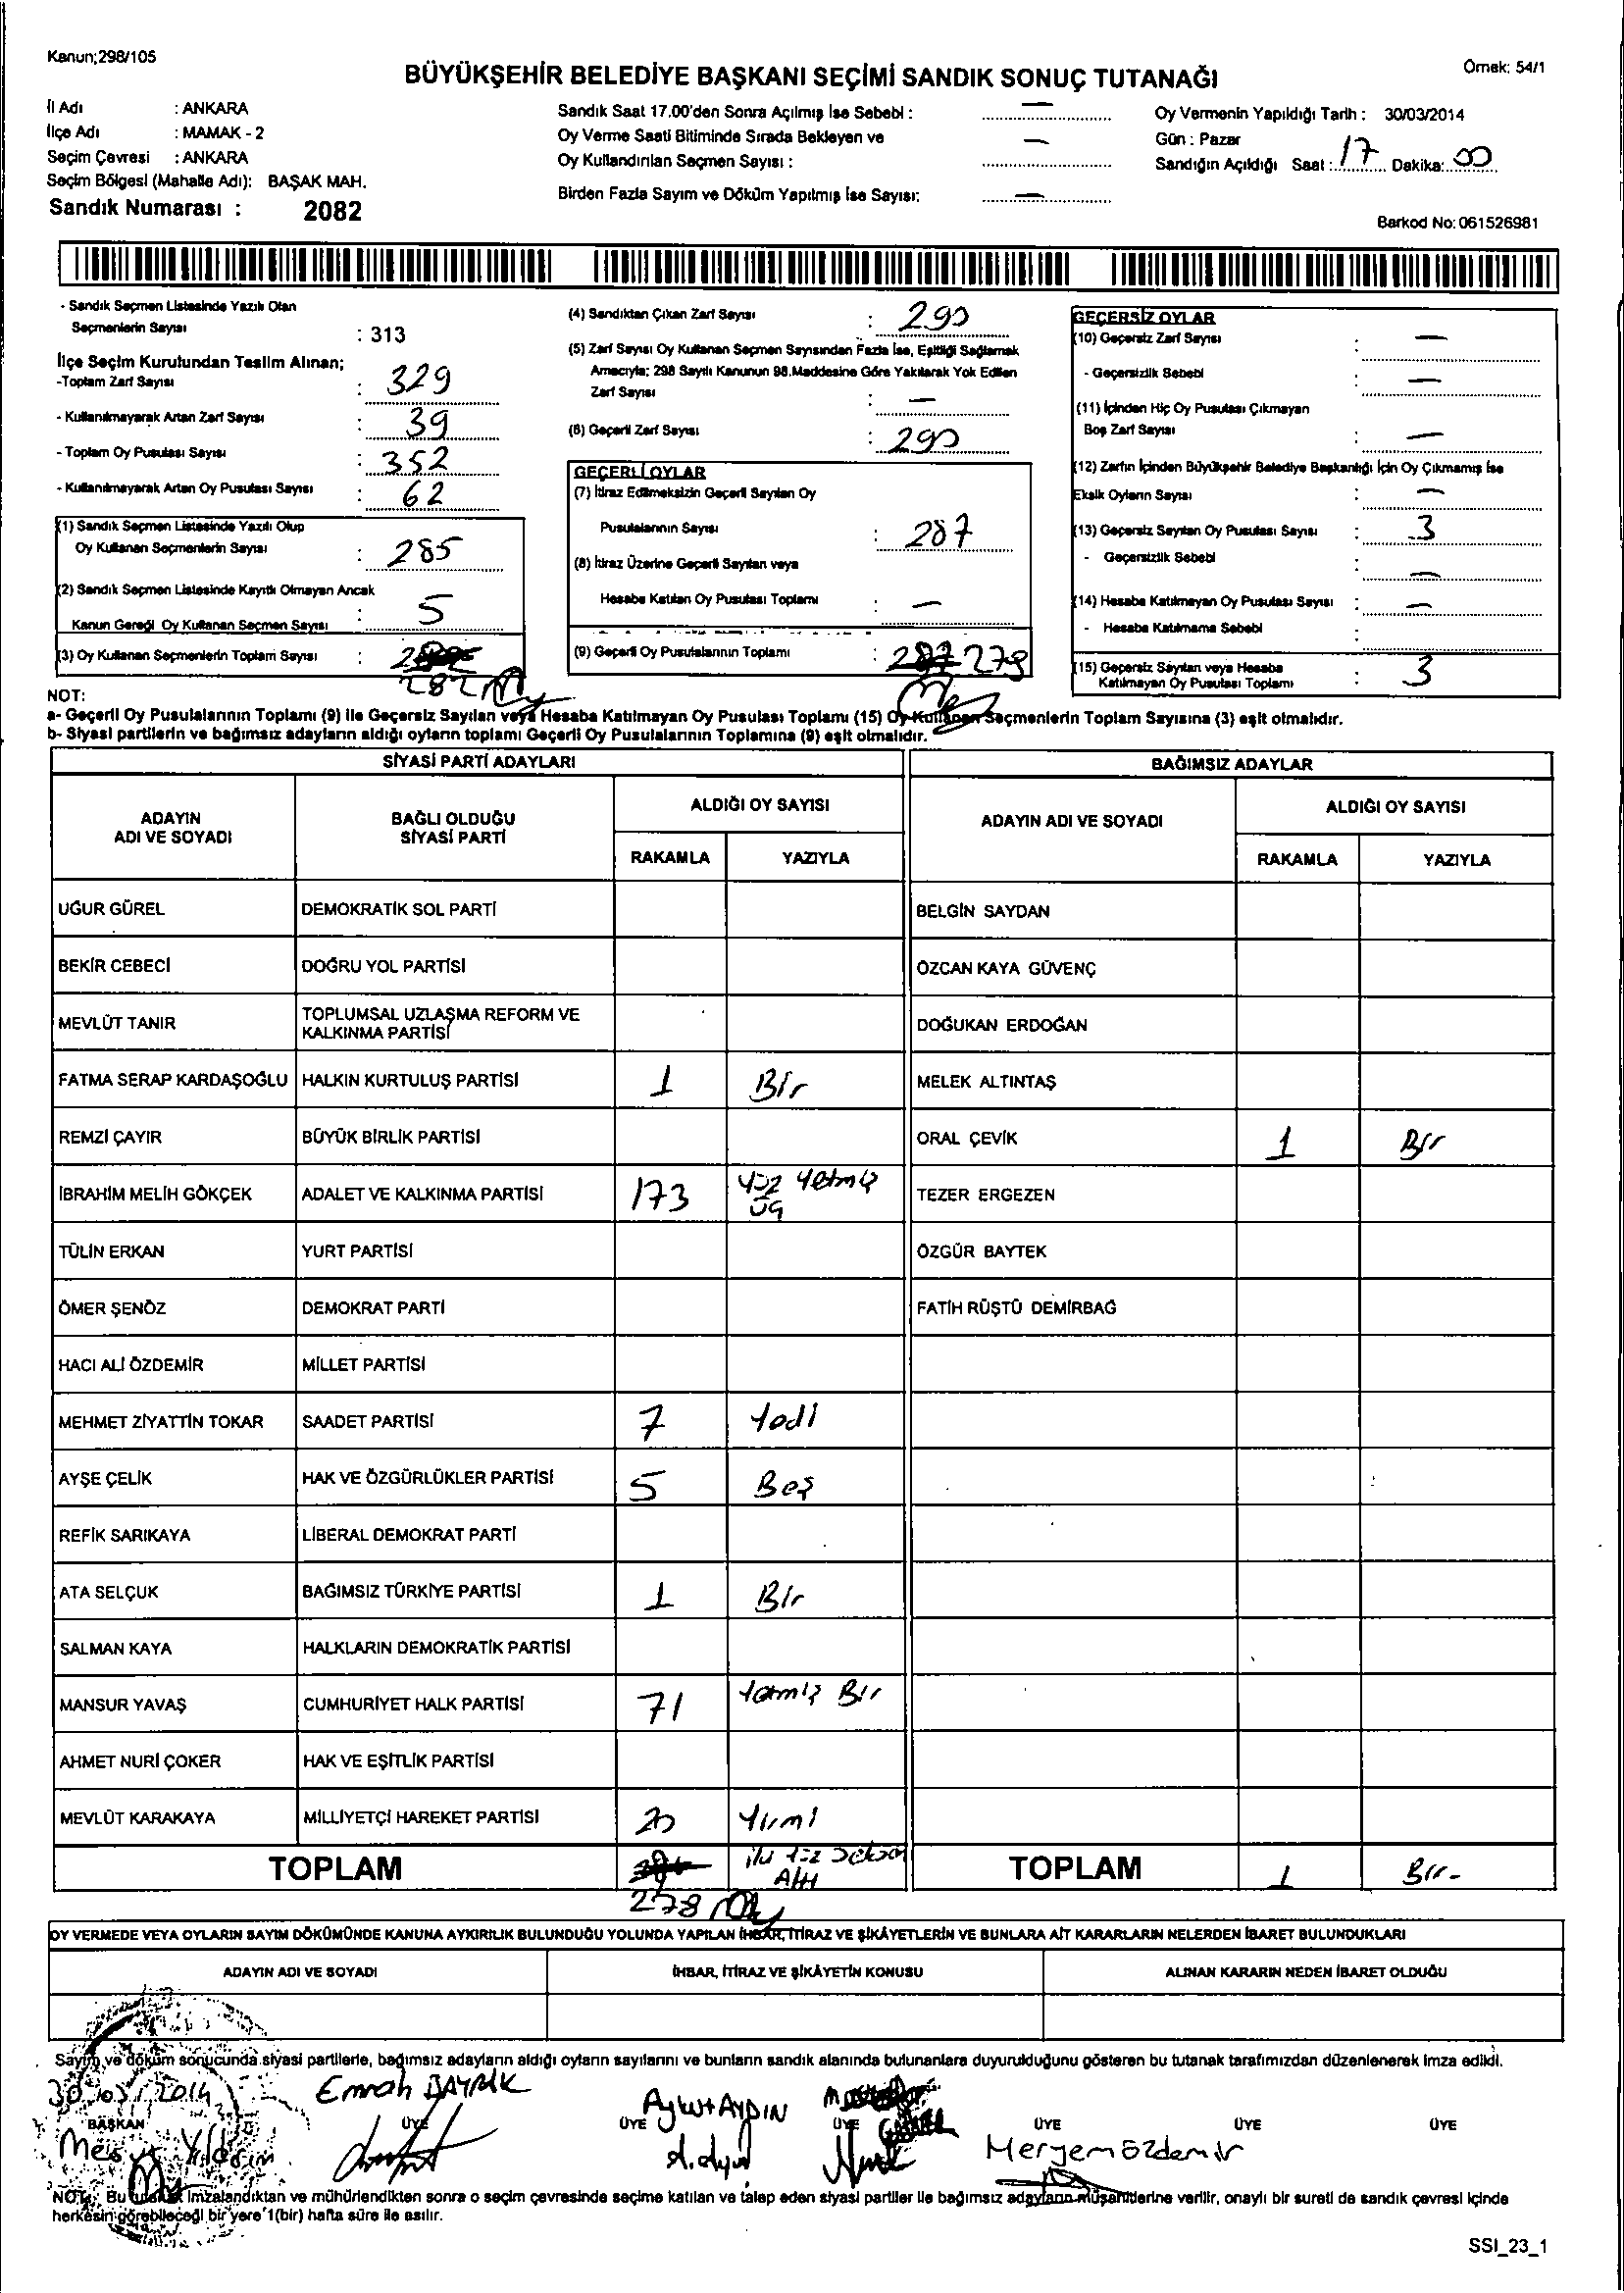 Kanun;298/105
Örnek: 54/1
BÜYÜKŞEHİR BELEDİYE BAŞKANI SEÇİMİ SANDIK SONUÇ TUTANAĞI
İl Adı : ANKARA
İlçe Adı : MAMAK - 2
Seçim Çevresi : ANKARA
Seçim Bölgesi (Mahalle Adı): BAŞAK MAH.
Sandık Numarası : 2082
Sandık Saat 17.00'den Sonra Açılmış İse Sebebi : —
Oy Verme Saati Bitiminde Sırada Bekleyen ve
Oy Kullandırılan Seçmen Sayısı : —
Birden Fazla Sayım ve Döküm Yapılmış İse Sayısı: —
Oy Vermenin Yapıldığı Tarih : 30/03/2014
Gün : Pazar
Sandığın Açıldığı Saat : 17 Dakika: 00
Barkod No: 061526981
- Sandık Seçmen Listesinde Yazılı Olan
Seçmenlerin Sayısı : 313
İlçe Seçim Kurulundan Teslim Alınan;
-Toplam Zarf Sayısı : 329
- Kullanılmayarak Artan Zarf Sayısı : 39
- Toplam Oy Pusulası Sayısı : 352
- Kullanılmayarak Artan Oy Pusulası Sayısı : 62
(1) Sandık Seçmen Listesinde Yazılı Olup
Oy Kullanan Seçmenlerin Sayısı : 285
(2) Sandık Seçmen Listesinde Kayıtlı Olmayan Ancak
Kanun Gereği Oy Kullanan Seçmen Sayısı : 5
(3) Oy Kullanan Seçmenlerin Toplam Sayısı :
282
(4) Sandıktan Çıkan Zarf Sayısı : 290
(5) Zarf Sayısı Oy Kullanan Seçmen Sayısından Fazla İse, Eşitliği Sağlamak
Amacıyla; 298 Sayılı Kanunun 98.Maddesine Göre Yakılarak Yok Edilen
Zarf Sayısı : —
(6) Geçerli Zarf Sayısı : 290
GEÇERLİ OYLAR
(7) İtiraz Edilmeksizin Geçerli Sayılan Oy
Pusulalarının Sayısı : 287
(8) İtiraz Üzerine Geçerli Sayılan veya
Hesaba Katılan Oy Pusulası Toplamı : —
(9) Geçerli Oy Pusulalarının Toplamı : 287 279
GEÇERSİZ OYLAR
(10) Geçersiz Zarf Sayısı : —
- Geçersizlik Sebebi : —
(11) İçinden Hiç Oy Pusulası Çıkmayan
Boş Zarf Sayısı : —
(12) Zarfın İçinden Büyükşehir Belediye Başkanlığı İçin Oy Çıkmamış İse
Eksik Oyların Sayısı : —
(13) Geçersiz Sayılan Oy Pusulası Sayısı : 3
- Geçersizlik Sebebi : —
(14) Hesaba Katılmayan Oy Pusulası Sayısı : —
- Hesaba Katılmama Sebebi :
(15) Geçersiz Sayılan veya Hesaba
Katılmayan Oy Pusulası Toplamı : 3
NOT:
a- Geçerli Oy Pusulalarının Toplamı (9) ile Geçersiz Sayılan veya Hesaba Katılmayan Oy Pusulası Toplamı (15) Oy Kullanan Seçmenlerin Toplam Sayısına (3) eşit olmalıdır.
b- Siyasi partilerin ve bağımsız adayların aldığı oyların toplamı Geçerli Oy Pusulalarının Toplamına (9) eşit olmalıdır.
SİYASİ PARTİ ADAYLARI
ADAYIN ADI VE SOYADI BAĞLI OLDUĞU SİYASİ PARTİ ALDIĞI OY SAYISI
RAKAMLA YAZIYLA
UĞUR GÜREL DEMOKRATİK SOL PARTİ
BEKİR CEBECİ DOĞRU YOL PARTİSİ
MEVLÜT TANIR TOPLUMSAL UZLAŞMA REFORM VE KALKINMA PARTİSİ
FATMA SERAP KARDAŞOĞLU HALKIN KURTULUŞ PARTİSİ 1 Bir
REMZİ ÇAYIR BÜYÜK BİRLİK PARTİSİ
İBRAHİM MELİH GÖKÇEK ADALET VE KALKINMA PARTİSİ 173 Yüz Yetmiş Üç
TÜLİN ERKAN YURT PARTİSİ
ÖMER ŞENÖZ DEMOKRAT PARTİ
HACI ALİ ÖZDEMİR MİLLET PARTİSİ
MEHMET ZİYATTİN TOKAR SAADET PARTİSİ 7 Yedi
AYŞE ÇELİK HAK VE ÖZGÜRLÜKLER PARTİSİ 5 Beş
REFİK SARIKAYA LİBERAL DEMOKRAT PARTİ
ATA SELÇUK BAĞIMSIZ TÜRKİYE PARTİSİ 1 Bir
SALMAN KAYA HALKLARIN DEMOKRATİK PARTİSİ
MANSUR YAVAŞ CUMHURİYET HALK PARTİSİ 71 Yetmiş Bir
AHMET NURİ ÇOKER HAK VE EŞİTLİK PARTİSİ
MEVLÜT KARAKAYA MİLLİYETÇİ HAREKET PARTİSİ 20 Yirmi
TOPLAM iki yüz Seksen Altı
278
BAĞIMSIZ ADAYLAR
ADAYIN ADI VE SOYADI ALDIĞI OY SAYISI
RAKAMLA YAZIYLA
BELGİN SAYDAN
ÖZCAN KAYA GÜVENÇ
DOĞUKAN ERDOĞAN
MELEK ALTINTAŞ
ORAL ÇEVİK 1 Bir
TEZER ERGEZEN
ÖZGÜR BAYTEK
FATİH RÜŞTÜ DEMİRBAĞ
TOPLAM 1 Bir-
OY VERMEDE VEYA OYLARIN SAYIM DÖKÜMÜNDE KANUNA AYKIRILIK BULUNDUĞU YOLUNDA YAPILAN İHBAR, İTİRAZ VE ŞİKÂYETLERİN VE BUNLARA AİT KARARLARIN NELERDEN İBARET BULUNDUKLARI
ADAYIN ADI VE SOYADI İHBAR, İTİRAZ VE ŞİKÂYETİN KONUSU ALINAN KARARIN NEDEN İBARET OLDUĞU
Sayım ve döküm sonucunda siyasi partilerle, bağımsız adayların aldığı oyların sayılarını ve bunların sandık alanında bulunanlara duyurulduğunu gösteren bu tutanak tarafımızdan düzenlenerek imza edildi.
30/03/2014 Emrah BAYRAK Aykut AYDIN
BAŞKAN ÜYE ÜYE ÜYE ÜYE ÜYE ÜYE
Mesut Yıldırım A.Aydın Meryem Özdemir
NOT: Bu tutanak imzalandıktan ve mühürlendikten sonra o seçim çevresinde seçime katılan ve talep eden siyasi partiler ile bağımsız adayların müşahitlerine verilir, onaylı bir sureti de sandık çevresi içinde
herkesin görebileceği bir yere 1(bir) hafta süre ile asılır.
SSI_23_1